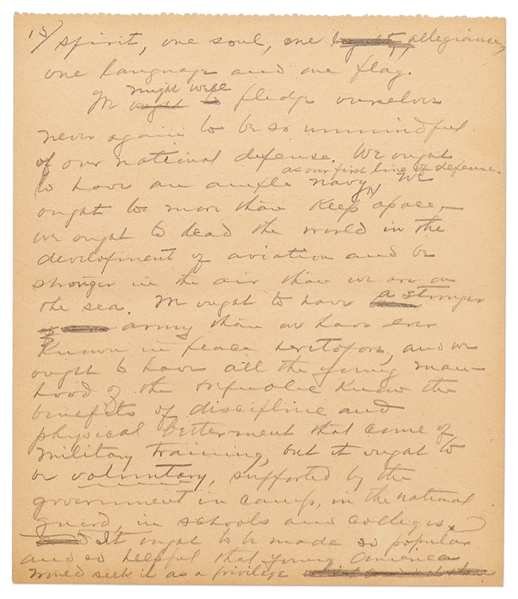 15/ spirit, one soul, one allegiance,
one language and one flag.
might well
We ought to pledge ourselves
never again to be so unmindful
of our national defense. We ought
as our first line of defense.
to have an ample navy We
ought to more than keep apace –
we ought to lead the world in the
development of aviation and be
stronger in the air than we are on
the sea. We ought to have a stronger
army than we have ever
known in peace heretofore, and we
ought to have all the young man-
hood of the republic know the
benefits of discipline and
physical betterment that come of
military training, but it ought to
be voluntary, supported by the
government in camp, in the national
guard, in schools and colleges.
And It ought to be made so popular
and so helpful that young America
would seek it as a privilege